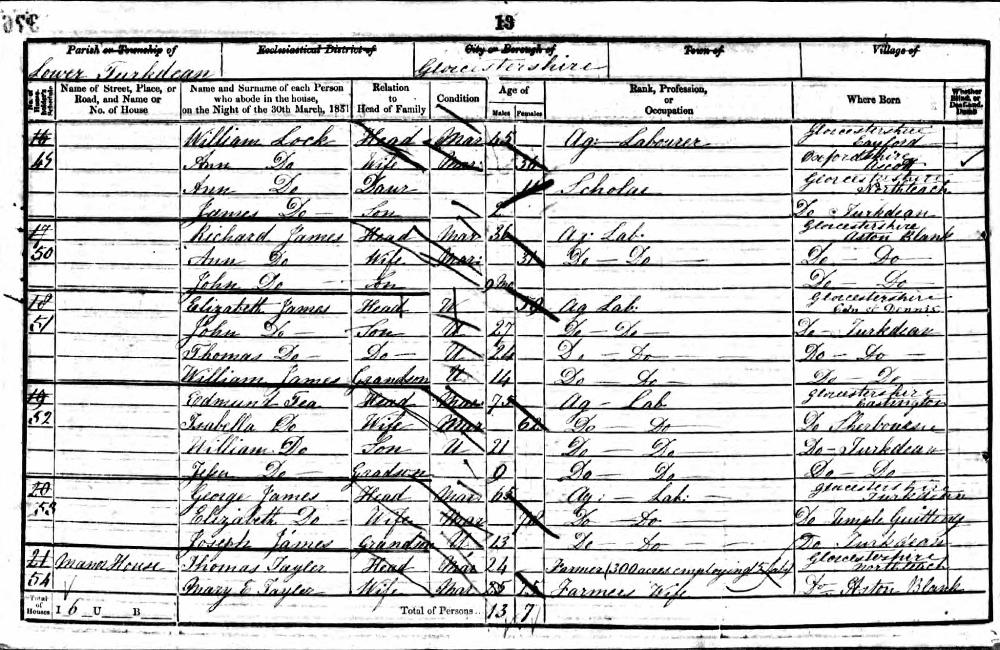 13
Parish or Township of Ecclesiastical District of City or Borough of Town of Village of
Lower Turkdean Gloucestershire
Name of Street, Place, or Road, and Name or No. of House
Name and Surname of each Person who abode in the house, on the Night of the 30th March, 1851
Relation to Head of Family
Condition
Age of
Males Females
Rank, Profession, or Occupation
Where Born
Whether Blind, or Deaf-and-Dumb
William Lock Head Mar 45 Ag: Labourer Gloucestershire
49 Ann Do Wife Mar: Oxfordshire Ascot
Ann Do Daur Scholar Gloucestershire Northleach
James Do Son 2 Do Turkdean
17 Richard James Head Mar 36 Ag: Lab: Gloucestershire Aston Blank
50 Ann Do Wife Mar: 31 Do Do Do Do
John Do Son Do Do
18 Elizabeth James Head W 59 Ag Lab: Gloucestershire
51 John Do Son U 27 Do Do Do Turkdean
Thomas Do Do U 24 Do Do Do Do
William James Grandson U 14 Do Do Do Do
19 Edmund Tea Head Mar 75 Ag Lab Gloucestershire Eastington
52 Isabella Do Wife Mar Do Do Do Sherbourne
William Do Son U 21 Do Do Do Turkdean
Do Gradson 9 Do Do Do Do
20 George James Head Mar 65 Ag: Lab: Gloucestershire Turkdean
53 Elizabeth Do Wife Mar Do Do Do Temple Guitting
Joseph James Grandson U 13 Do Do Do Turkdean
21 Manor House Thomas Tayler Head Mar 24 Farmer (300 acres employing Gloucestershire Northleach
54 Mary E Tayler Wife Mar Farmers Wife Do Aston Blank
Total of Houses I 6 U B Total of Persons 13 7